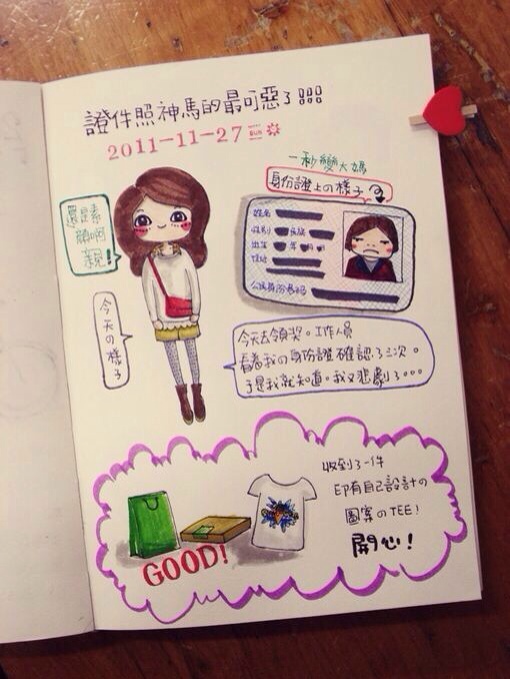 證件照神馬的最可惡了!!!
2011-11-27 SUN
一秒變大媽
身份證上の樣子
還是素
顏啊
親!!
姓名
性别 民族
出生 年 月 日
住址
公民身份号码
今天の樣子
今天去領奖。工作人員
看着我の身份證確認了三次。
于是我就知道。我又悲劇了…
收到了一件
印有自己設計の
圖案のTEE!
開心!
GOOD!